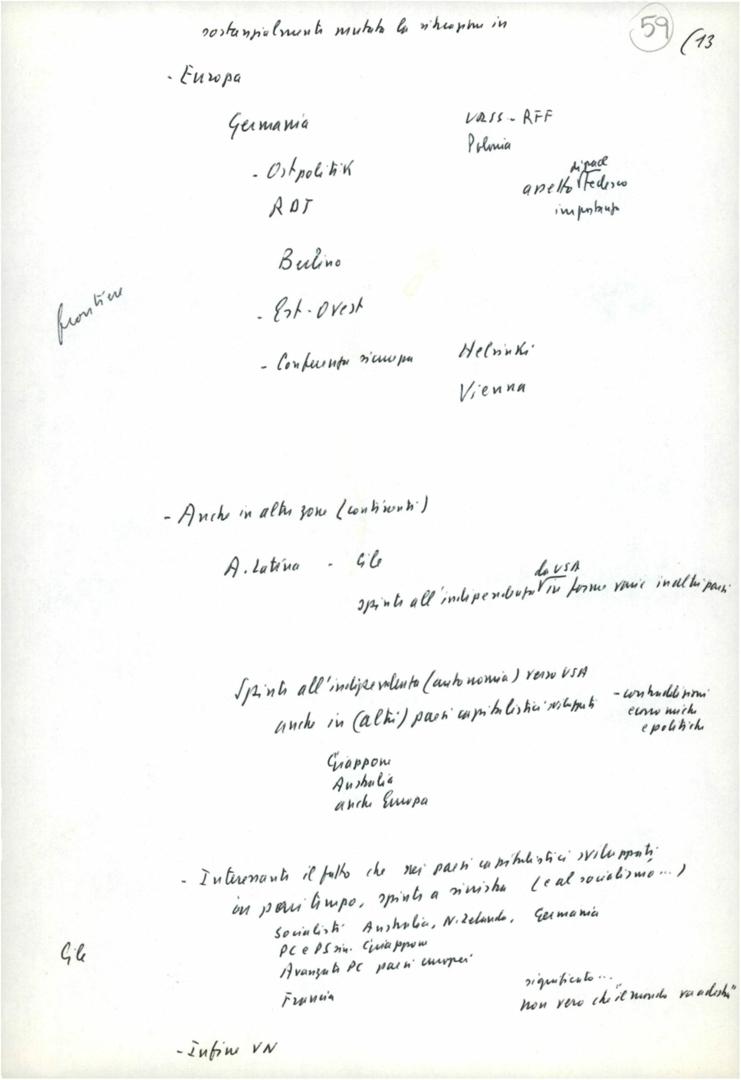 sostanzialmente mutata la situazione in
59 (13
- Europa
Germania URSS - RFF
Polonia
- Ostpolitik
di pace
assetto tedesco
importanza
RDT
Berlino
frontiere
- Est-Ovest
- Conferenza sicurezza Helsinki
Vienna
- Anche in altre zone (continenti)
A. Latina - Cile
da USA
spinte all'indipendenza in forme varie in altri paesi
Spinte all'indipendenza (autonomia) verso USA
anche in (altri) paesi capitalistici sviluppati
- contraddizioni
economiche
e politiche
Giappone
Australia
anche Europa
- Interessante il fatto che nei paesi capitalistici sviluppati
in pari tempo, spinte a sinistra (e al socialismo...)
Socialisti Australia, N. Zelanda, Germania
PC e PS sin. Giappone
Cile
Avanzate PC paesi europei
Francia
significato...
non vero che "il mondo va a destra"
- Infine VN